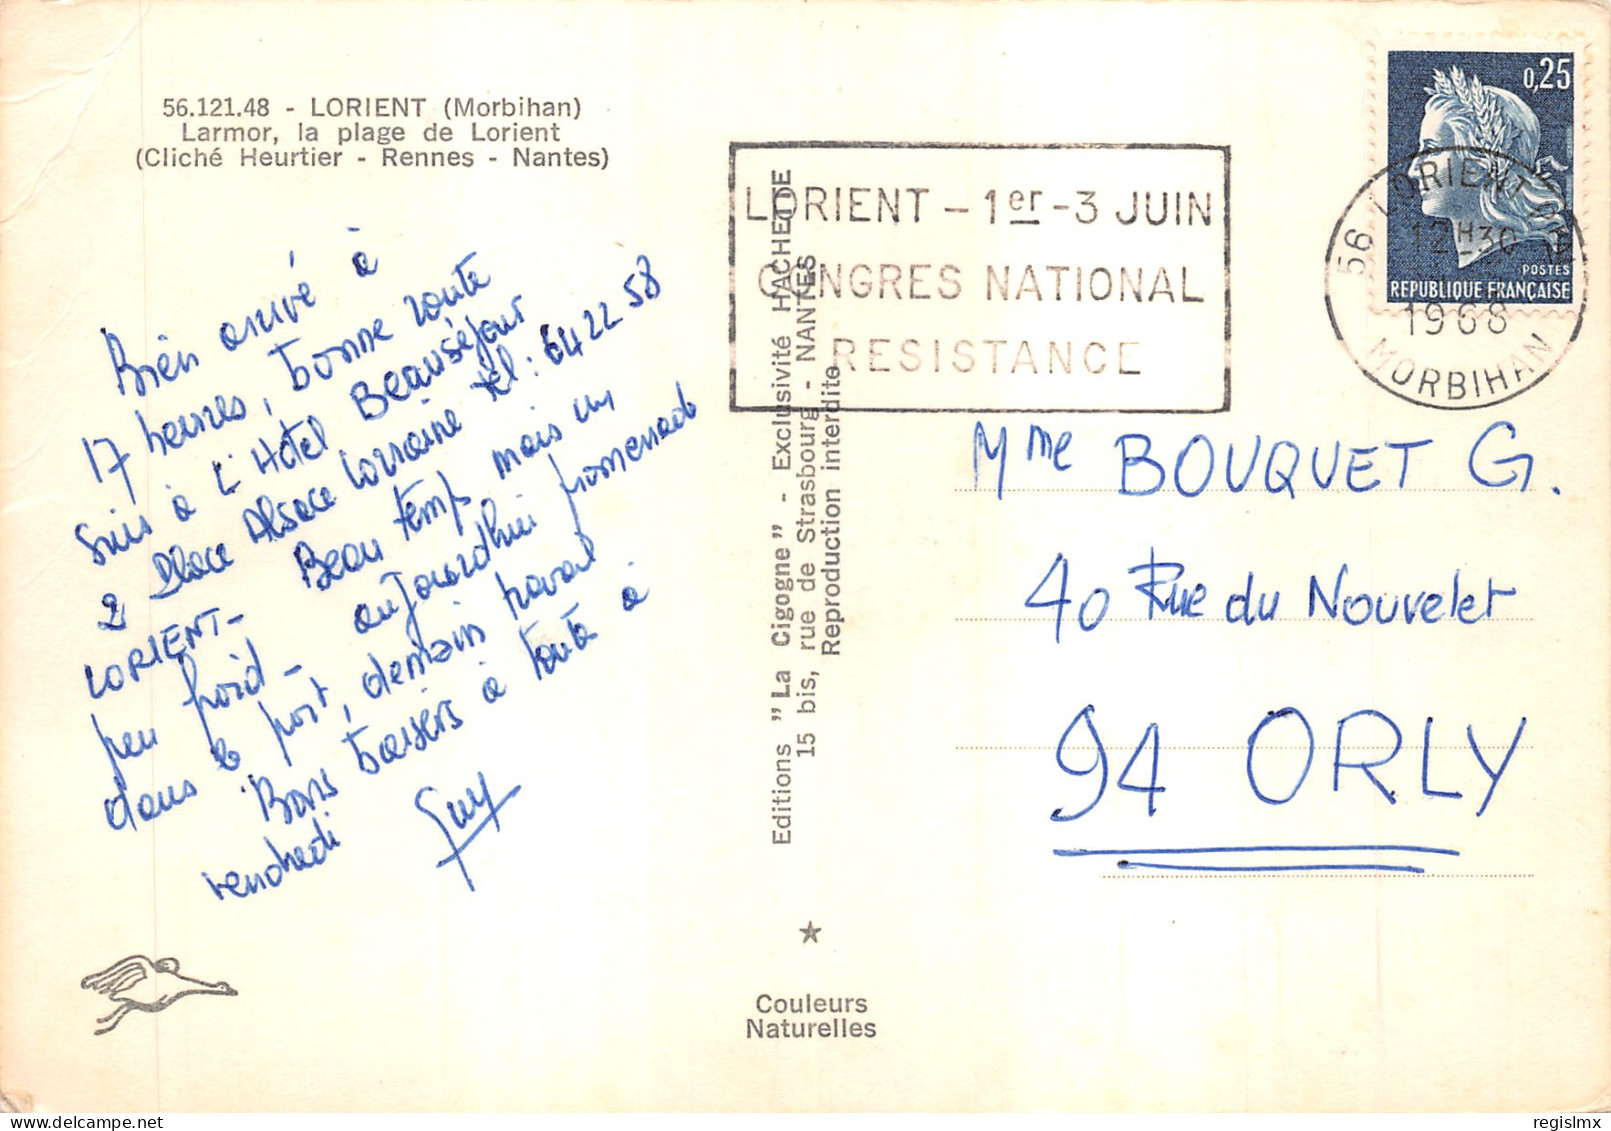 56.121.48 - LORIENT (Morbihan)
Larmor, la plage de Lorient
(Cliché Heurtier - Rennes - Nantes)
Bien arrivé à
17 heures, bonne route
suis à l'Hotel Beauséjour
2 Place Alsace Lorraine tél : 64 22 58
LORIENT - Beau temps mais un
peu froid - aujourd'hui promenade
dans le port, demain travail
Bons baisers à toute à
vendredi
Guy
Editions "La Cigogne" - Exclusivité HACHETTE
15 bis, rue de Strasbourg - NANTES
Reproduction interdite
Couleurs
Naturelles
LORIENT - 1er - 3 JUIN
CONGRES NATIONAL
RESISTANCE
0,25
POSTES
REPUBLIQUE FRANÇAISE
56 LORIENT
12H30
1968
MORBIHAN
Mme BOUQUET G.
40 Rue du Nouvelet
94 ORLY
regislmx